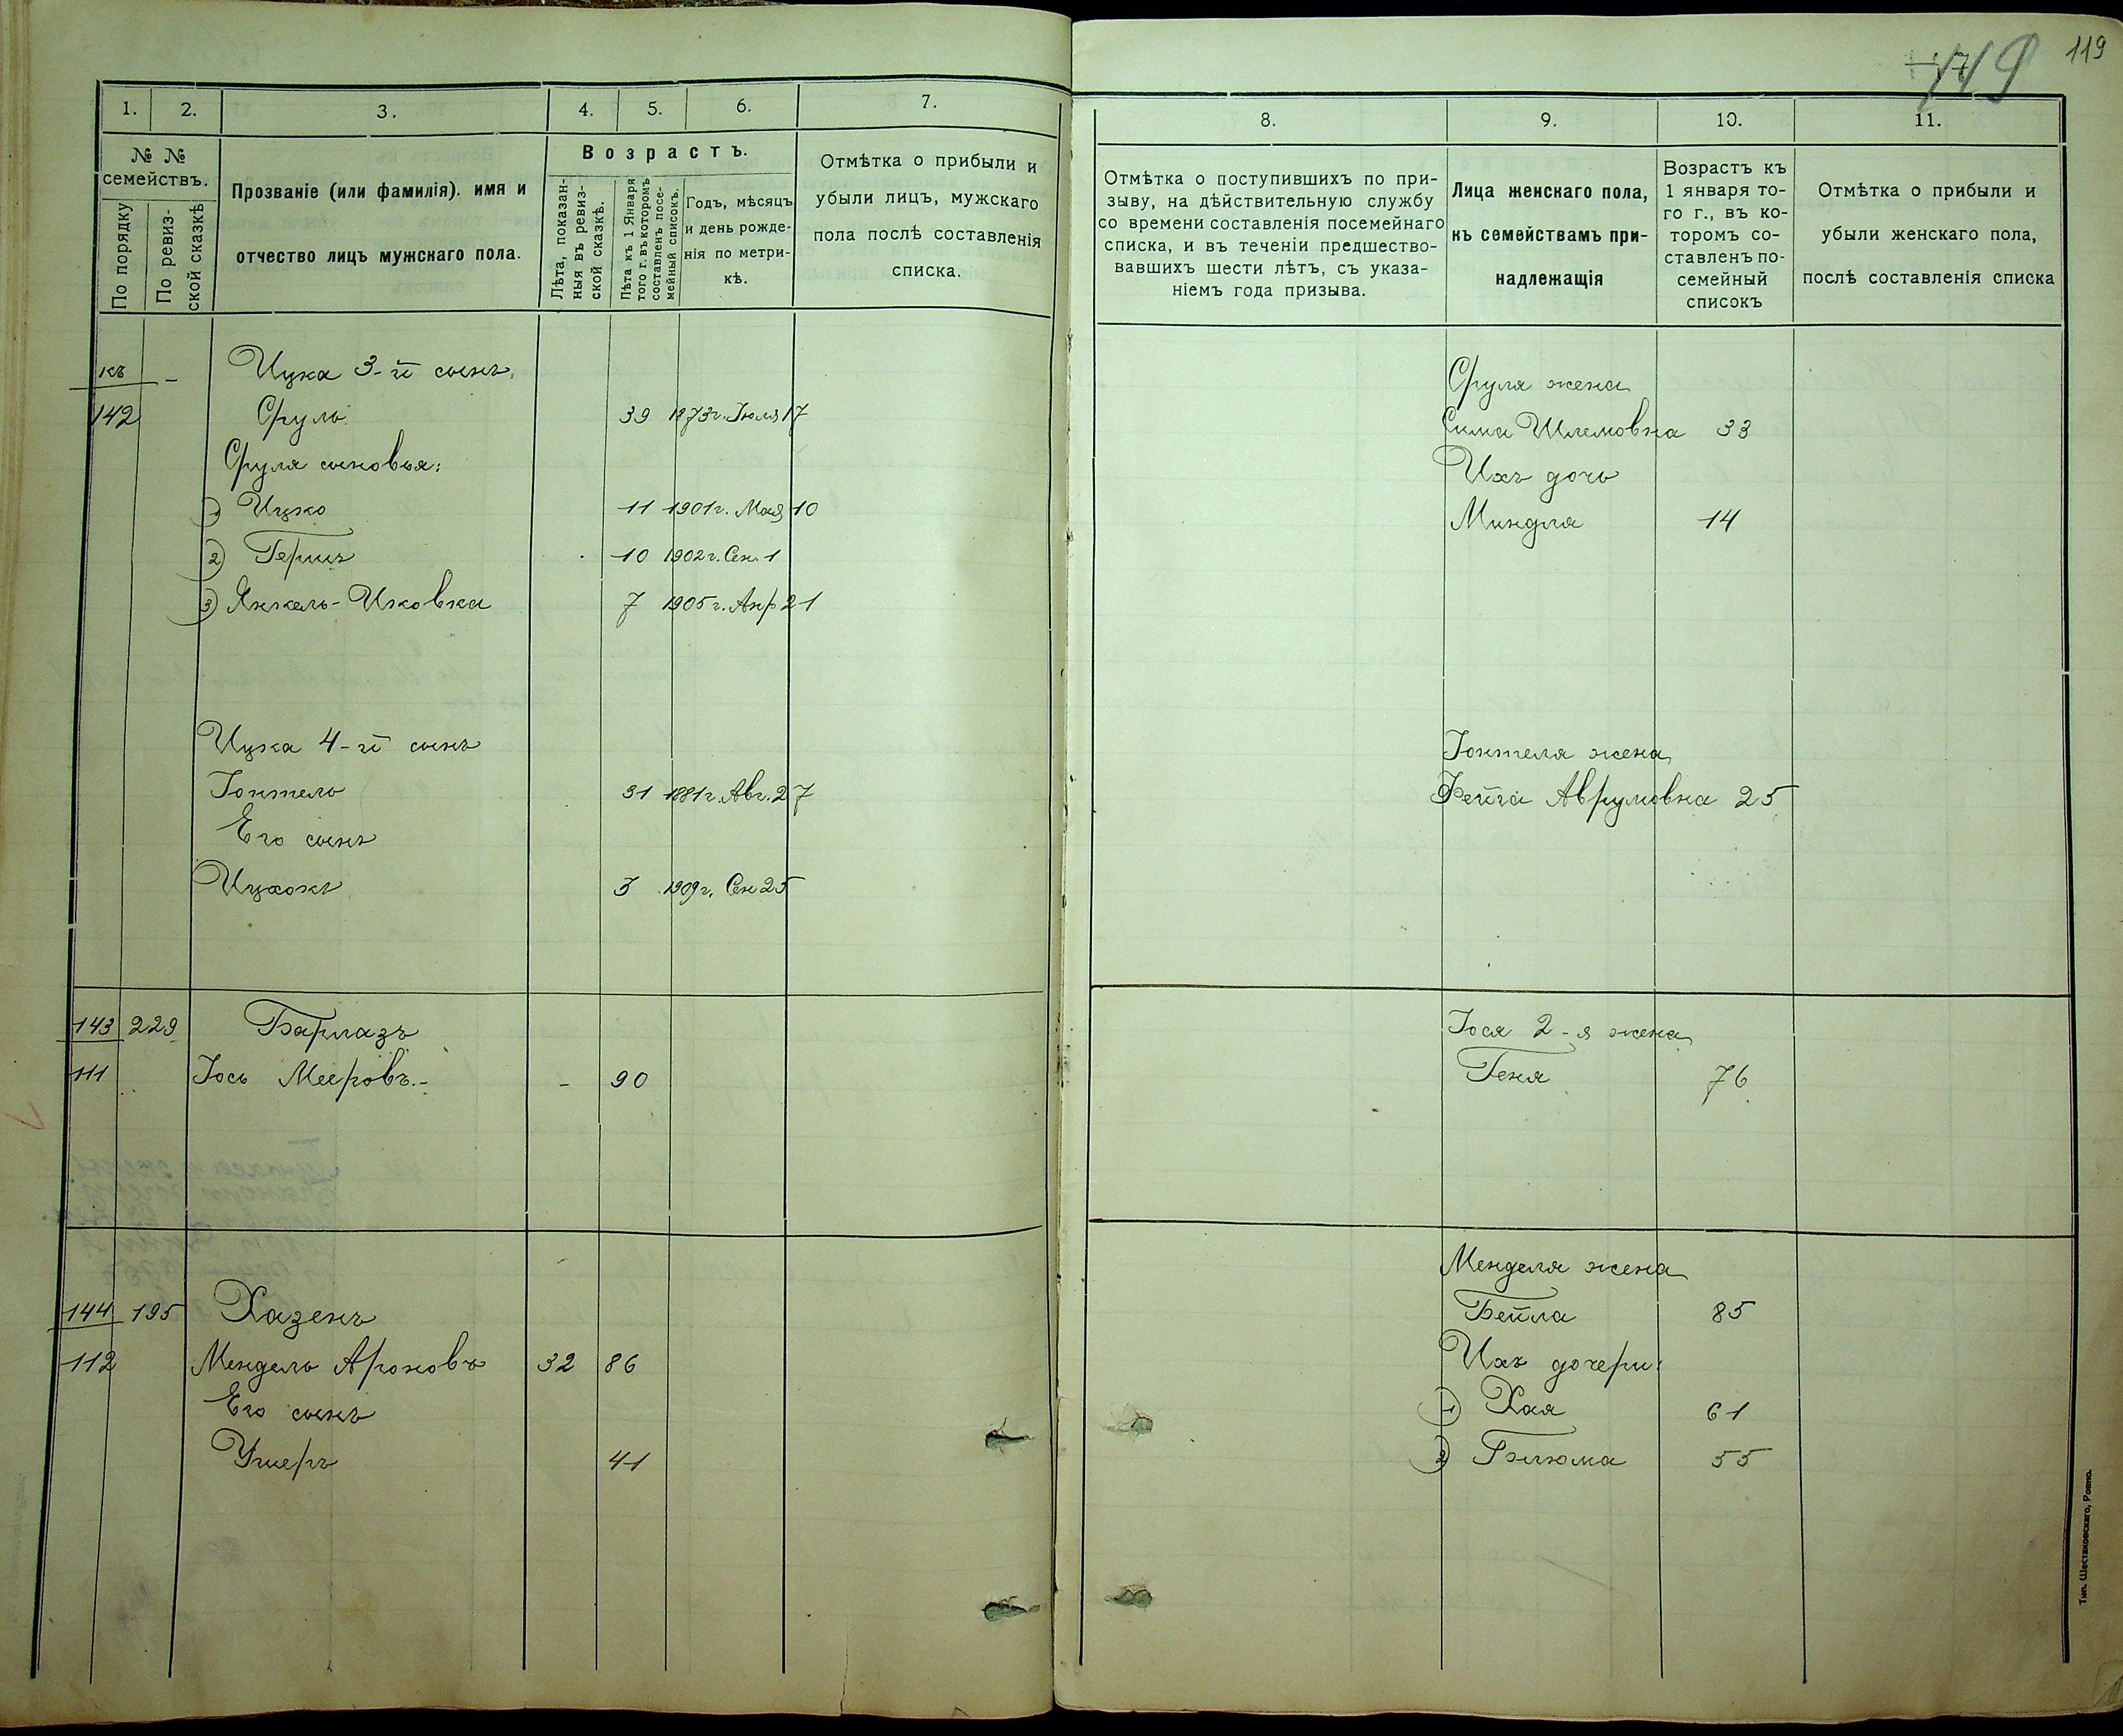 119
119
1. 2. 3. 4. 5. 6. 7.
№ №
семействъ.
По порядку
По ревиз-
ской сказкѣ
Прозваніе (или фамилія). имя и
отчество лицъ мужскаго пола.
Возрастъ.
Лѣта, показан-
ныя въ ревиз-
ской сказкѣ.
Лѣта къ 1 Января
того г. въ которомъ
составленъ посе-
мейный списокъ.
Годъ, мѣсяцъ
и день рожде-
нія по метри-
кѣ.
Отмѣтка о прибыли и
убыли лицъ, мужскаго
пола послѣ составленія
списка.
къ - Ицка 3-й сынъ
142 Сруль 39 1873 г. Іюля 17
Сруля сыновья:
1) Ицко 11 1901 г. Мая 10
2) Гершъ 10 1902 г. Сен. 1
3) Янкель-Ицковка 7 1905 г. Апр 21
Ицка 4-й сынъ
Іонтель 31 1881 г. Авг. 27
Его сынъ
Ицхокъ 3 1909 г. Сен 25
143 229 Барлазъ
111 Іось Мееровъ. - 90
144 195 Хазенъ
112 Мендель Ароновъ 32 86
Его сынъ
Ушеръ 41
8. 9. 10. 11.
Отмѣтка о поступившихъ по при-
зыву, на дѣйствительную службу
со времени составленія посемейнаго
списка, и въ теченіи предшество-
вавшихъ шести лѣтъ, съ указа-
ніемъ года призыва.
Лица женскаго пола,
къ семействамъ при-
надлежащія
Возрастъ къ
1 января то-
го г., въ ко-
торомъ со-
ставленъ по-
семейный
списокъ
Отмѣтка о прибыли и
убыли женскаго пола,
послѣ составленія списка
Сруля жена
Сима Шлемовна 33
Ихъ дочь
Миндля 14
Іонтеля жена
Фейга Аврумовна 25
Іося 2-я жена
Геня 76
Менделя жена
Бейла 85
Ихъ дочери:
1) Хая 61
2) Блюма 55
Тип. Шестаковскаго, Ровно.